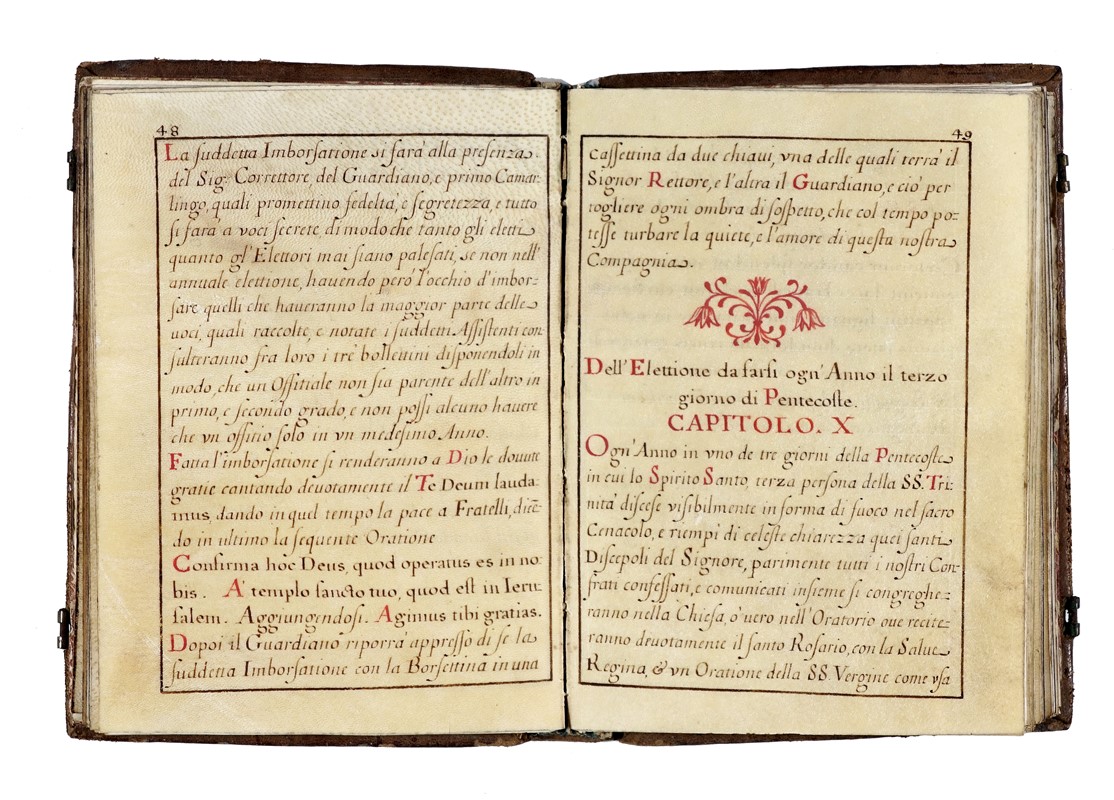 48
La suddetta Imborsatione si farà alla presenza
del Sig: Correttore, del Guardiano, e primo Camar:
lingo, quali promettino fedeltà, e segretezza, e tutto
si farà a voci secrete, di modo che tanto gli eletti
quanto gl'Elettori mai siano palesati, se non nell'
annuale elettione, hauendo però l'occhio d'imbor:
sare quelli che haueranno la maggior parte delle
uoci, quali raccolte, e notate i suddetti Assistenti con
sulteranno fra loro i trè bollettini disponendoli in
modo, che un Offitiale non sia parente dell'altro in
primo, e secondo grado, e non possi alcuno hauere
che vn officio solo in vn medesimo Anno.
Fatta l'imborsatione si renderanno a Dio le douute
gratie cantando deuotamente il Te Deum lauda:
mus, dando in quel tempo la pace a Fratelli, dicē:
do in ultimo la sequente Oratione
Confirma hoc Deus, quod operatus es in no:
bis. A' templo sancto tuo, quod est in Ieru:
salem. Aggiungendosi. Agimus tibi gratias.
Dopoi il Guardiano riporrà appresso di se la
suddetta Imborsatione con la Borsettina in una
49
Cassettina da due chiaui, vna delle quali terrà il
Signor Rettore, e l'altra il Guardiano, e ciò per
togliere ogni ombra di sospetto, che col tempo po:
tesse turbare la quiete, e l'amore di questa nostra
Compagnia.
Dell'Elettione da farsi ogn'Anno il terzo
giorno di Pentecoste.
CAPITOLO. X
Ogn'Anno in vno de tre giorni della Pentecoste
in cui lo Spirito Santo, terza persona della SS. Tri:
nità discese visibilmente in forma di fuoco nel sacro
Cenacolo, e riempì di celeste chiarezza quei santi
Discepoli del Signore, parimente tutti i nostri Con:
frati confessati, e comunicati insieme si congreghe:
ranno nella Chiesa, ò uero nell'Oratorio oue recite:
ranno deuotamente il santo Rosario, con la Salue
Regina, & vn Oratione della SS. Vergine come vsa